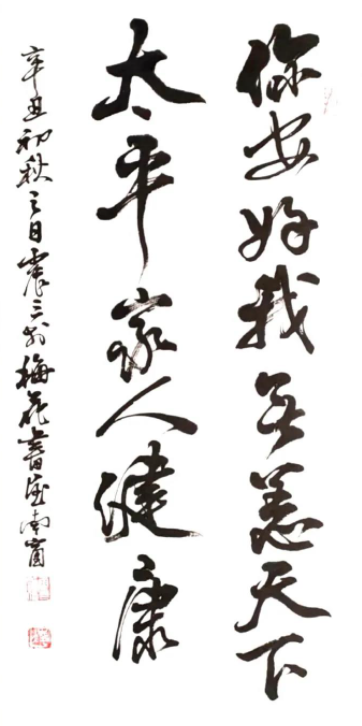 你安好我无恙天下
太平家人健康
辛丑初秋之日震三于梅花書屋南窗